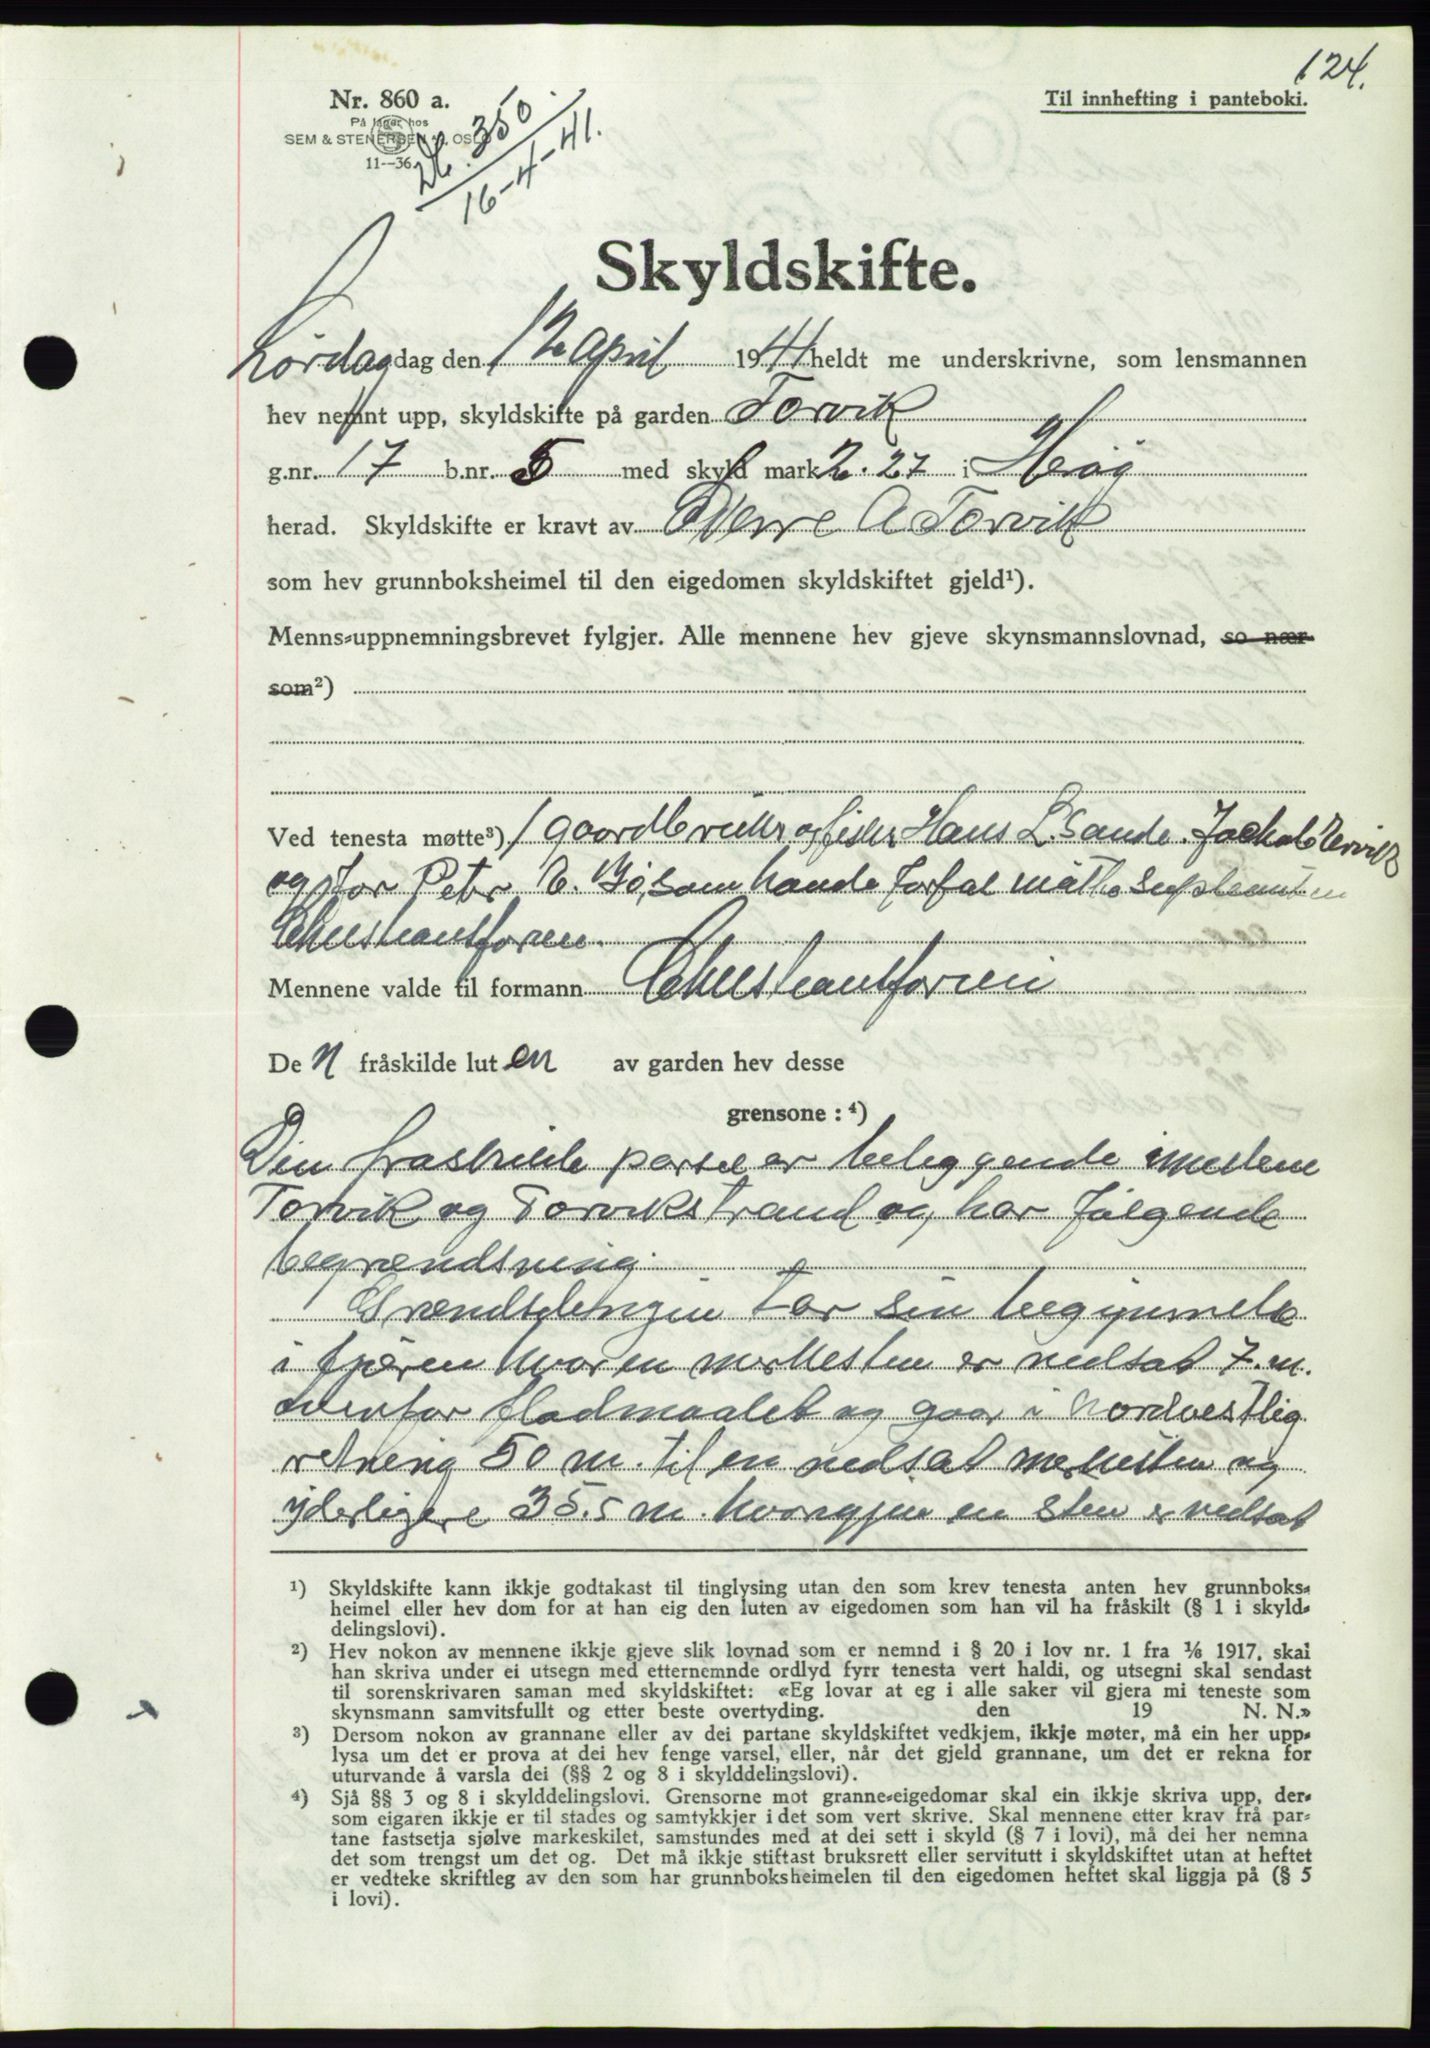 124.
Nr. 860 a.
Til innhefting i panteboki.
På lager hos
SEM & STENERSEN A/S, OSLO
11--36
350
16-4-41.
Skyldskifte.
Lørdag dag den 12 april 1941 heldt me underskrivne, som lensmannen
hev nemnt upp, skyldskifte på garden Torvik
g.nr. 17 b.nr. 5 med skyld mark 2.27 i Herøy
herad. Skyldskifte er kravt av Sverre A Torvik
som hev grunnboksheimel til den eigedomen skyldskiftet gjeld¹).
Menns-uppnemningsbrevet fylgjer. Alle mennene hev gjeve skynsmannslovnad, so nær
som²)
Ved tenesta møtte³) gaardbruker og fisker Hans L. Sande. Jackob Tervik
og for Peter E. Bø, som havde forfal møtte suplianten
Mennene valde til formann
De n fråskilde lut en av garden hev desse
grensone : ⁴)
Den fraskilde parsel er beliggende imellem
Torvik og Torvikstrand og har følgende
begrændsning.
Grændselinjen tar sin begynnelse
i fjæren hvor en merkesten er nedsat 7. m.
ovenfor flodmaalet og gaar i nordvestlig
retning 50 m. til en nedsat merkesten og
yderligere 35.5 m. hvorigjen en sten er nedsat
¹) Skyldskifte kann ikkje godtakast til tinglysing utan den som krev tenesta anten hev grunnboks-
heimel eller hev dom for at han eig den luten av eigedomen som han vil ha fråskilt (§ 1 i skyld-
delingslovi).
²) Hev nokon av mennene ikkje gjeve slik lovnad som er nemnd i § 20 i lov nr. 1 fra 1/6 1917, skal
han skriva under ei utsegn med etternemnde ordlyd fyrr tenesta vert haldi, og utsegni skal sendast
til sorenskrivaren saman med skyldskiftet: «Eg lovar at eg i alle saker vil gjera mi teneste som
skynsmann samvitsfullt og etter beste overtyding. den 19 N. N.»
³) Dersom nokon av grannane eller av dei partane skyldskiftet vedkjem, ikkje møter, må ein her upp-
lysa um det er prova at dei hev fenge varsel, eller, når det gjeld grannane, um det er rekna for
uturvande å varsla dei (§§ 2 og 8 i skylddelingslovi).
⁴) Sjå §§ 3 og 8 i skylddelingslovi. Grensorne mot granne-eigedomar skal ein ikkje skriva upp, der-
som eigaren ikkje er til stades og samtykkjer i det som vert skrive. Skal mennene etter krav frå par-
tane fastsetja sjølve markeskilet, samstundes med at dei sett i skyld (§ 7 i lovi), må dei her nemna
det som trengst um det og. Det må ikkje stiftast bruksrett eller servitutt i skyldskiftet utan at heftet
er vedteke skriftleg av den som har grunnboksheimelen til den eigedomen heftet skal liggja på (§ 5
i lovi).